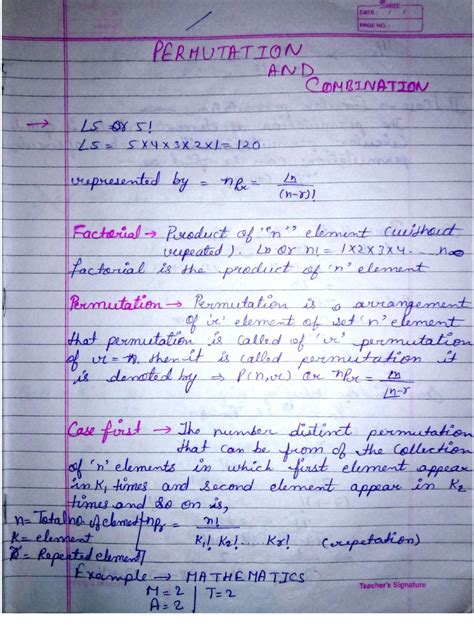 DATE: / /
PAGE NO.:
PERMUTATION
AND
COMBINATION
→ L5 or 5!
L5 = 5x4x3x2x1 = 120
represented by = nPr = Ln / (n-r)!
Factorial → Product of "n" element (without
repeated). Ln or n! = 1x2x3x4. n∞
factorial is the product of 'n' element
Permutation → Permutation is a arrangement
of 'r' element of set 'n' element
that permutation is called of 'r' permutation
of r = n. then it is called permutation it
is denoted by ⇒ P(n,r) or nPr = Ln / Ln-r
Case first → The number distinct permutation
that can be from of the collection
of 'n' elements in which first element appear
in K1 times and second element appear in K2
times and so on is,
n = Total no. of element nPr = n! / K1! K2! Kr! (repetation)
K = element
= Repeated element
Example → MATHEMATICS
M = 2 | T = 2
A = 2
Teacher's Signature